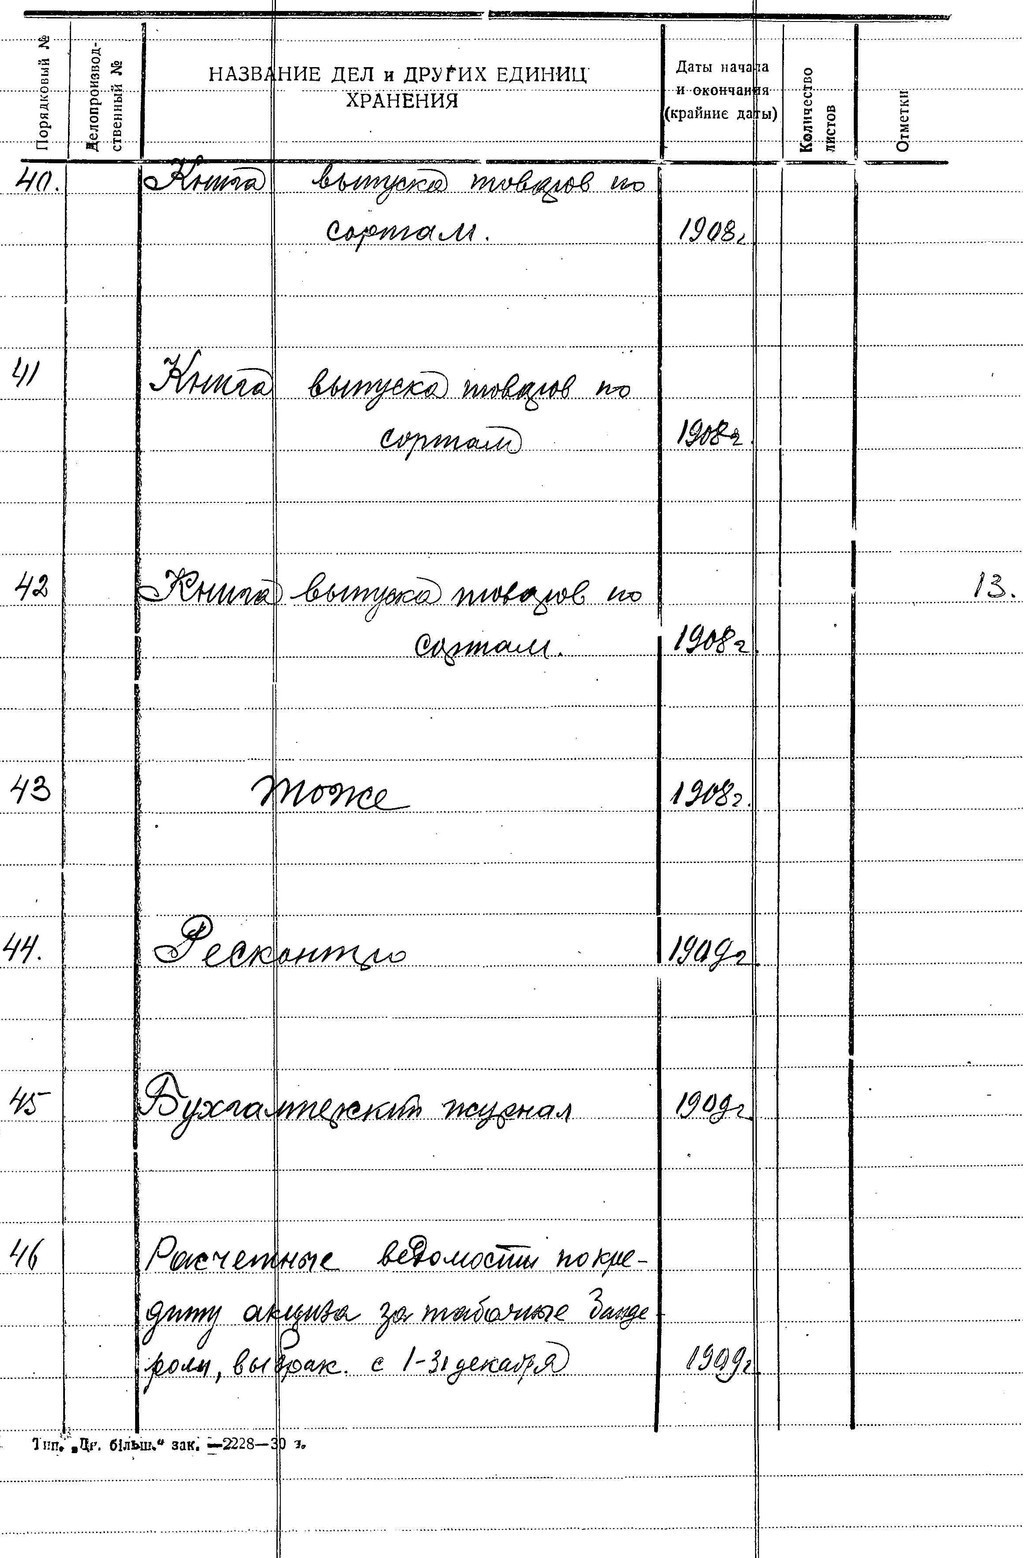 Порядковый №
Делопроизвод-
ственный №
НАЗВАНИЕ ДЕЛ и ДРУГИХ ЕДИНИЦ
ХРАНЕНИЯ
Даты начала
и окончания
(крайние даты)
Количество
листов
Отметки
40. Книга выпуска товаров по
сортам. 1908г
41 Книга выпуска товаров по
сортам 1908г
42 Книга выпуска товаров по 13.
сортам. 1908г.
43 тоже 1908г.
44. Ресконтро 1909г.
45 Бухгалтерский журнал 1909г
46 Расчетные ведомости по кре-
диту акциза за табачные банде-
роли, выбрак. с 1-31 декабря 1909г
Тип. „Др. більш." зак. —2228—30 з.